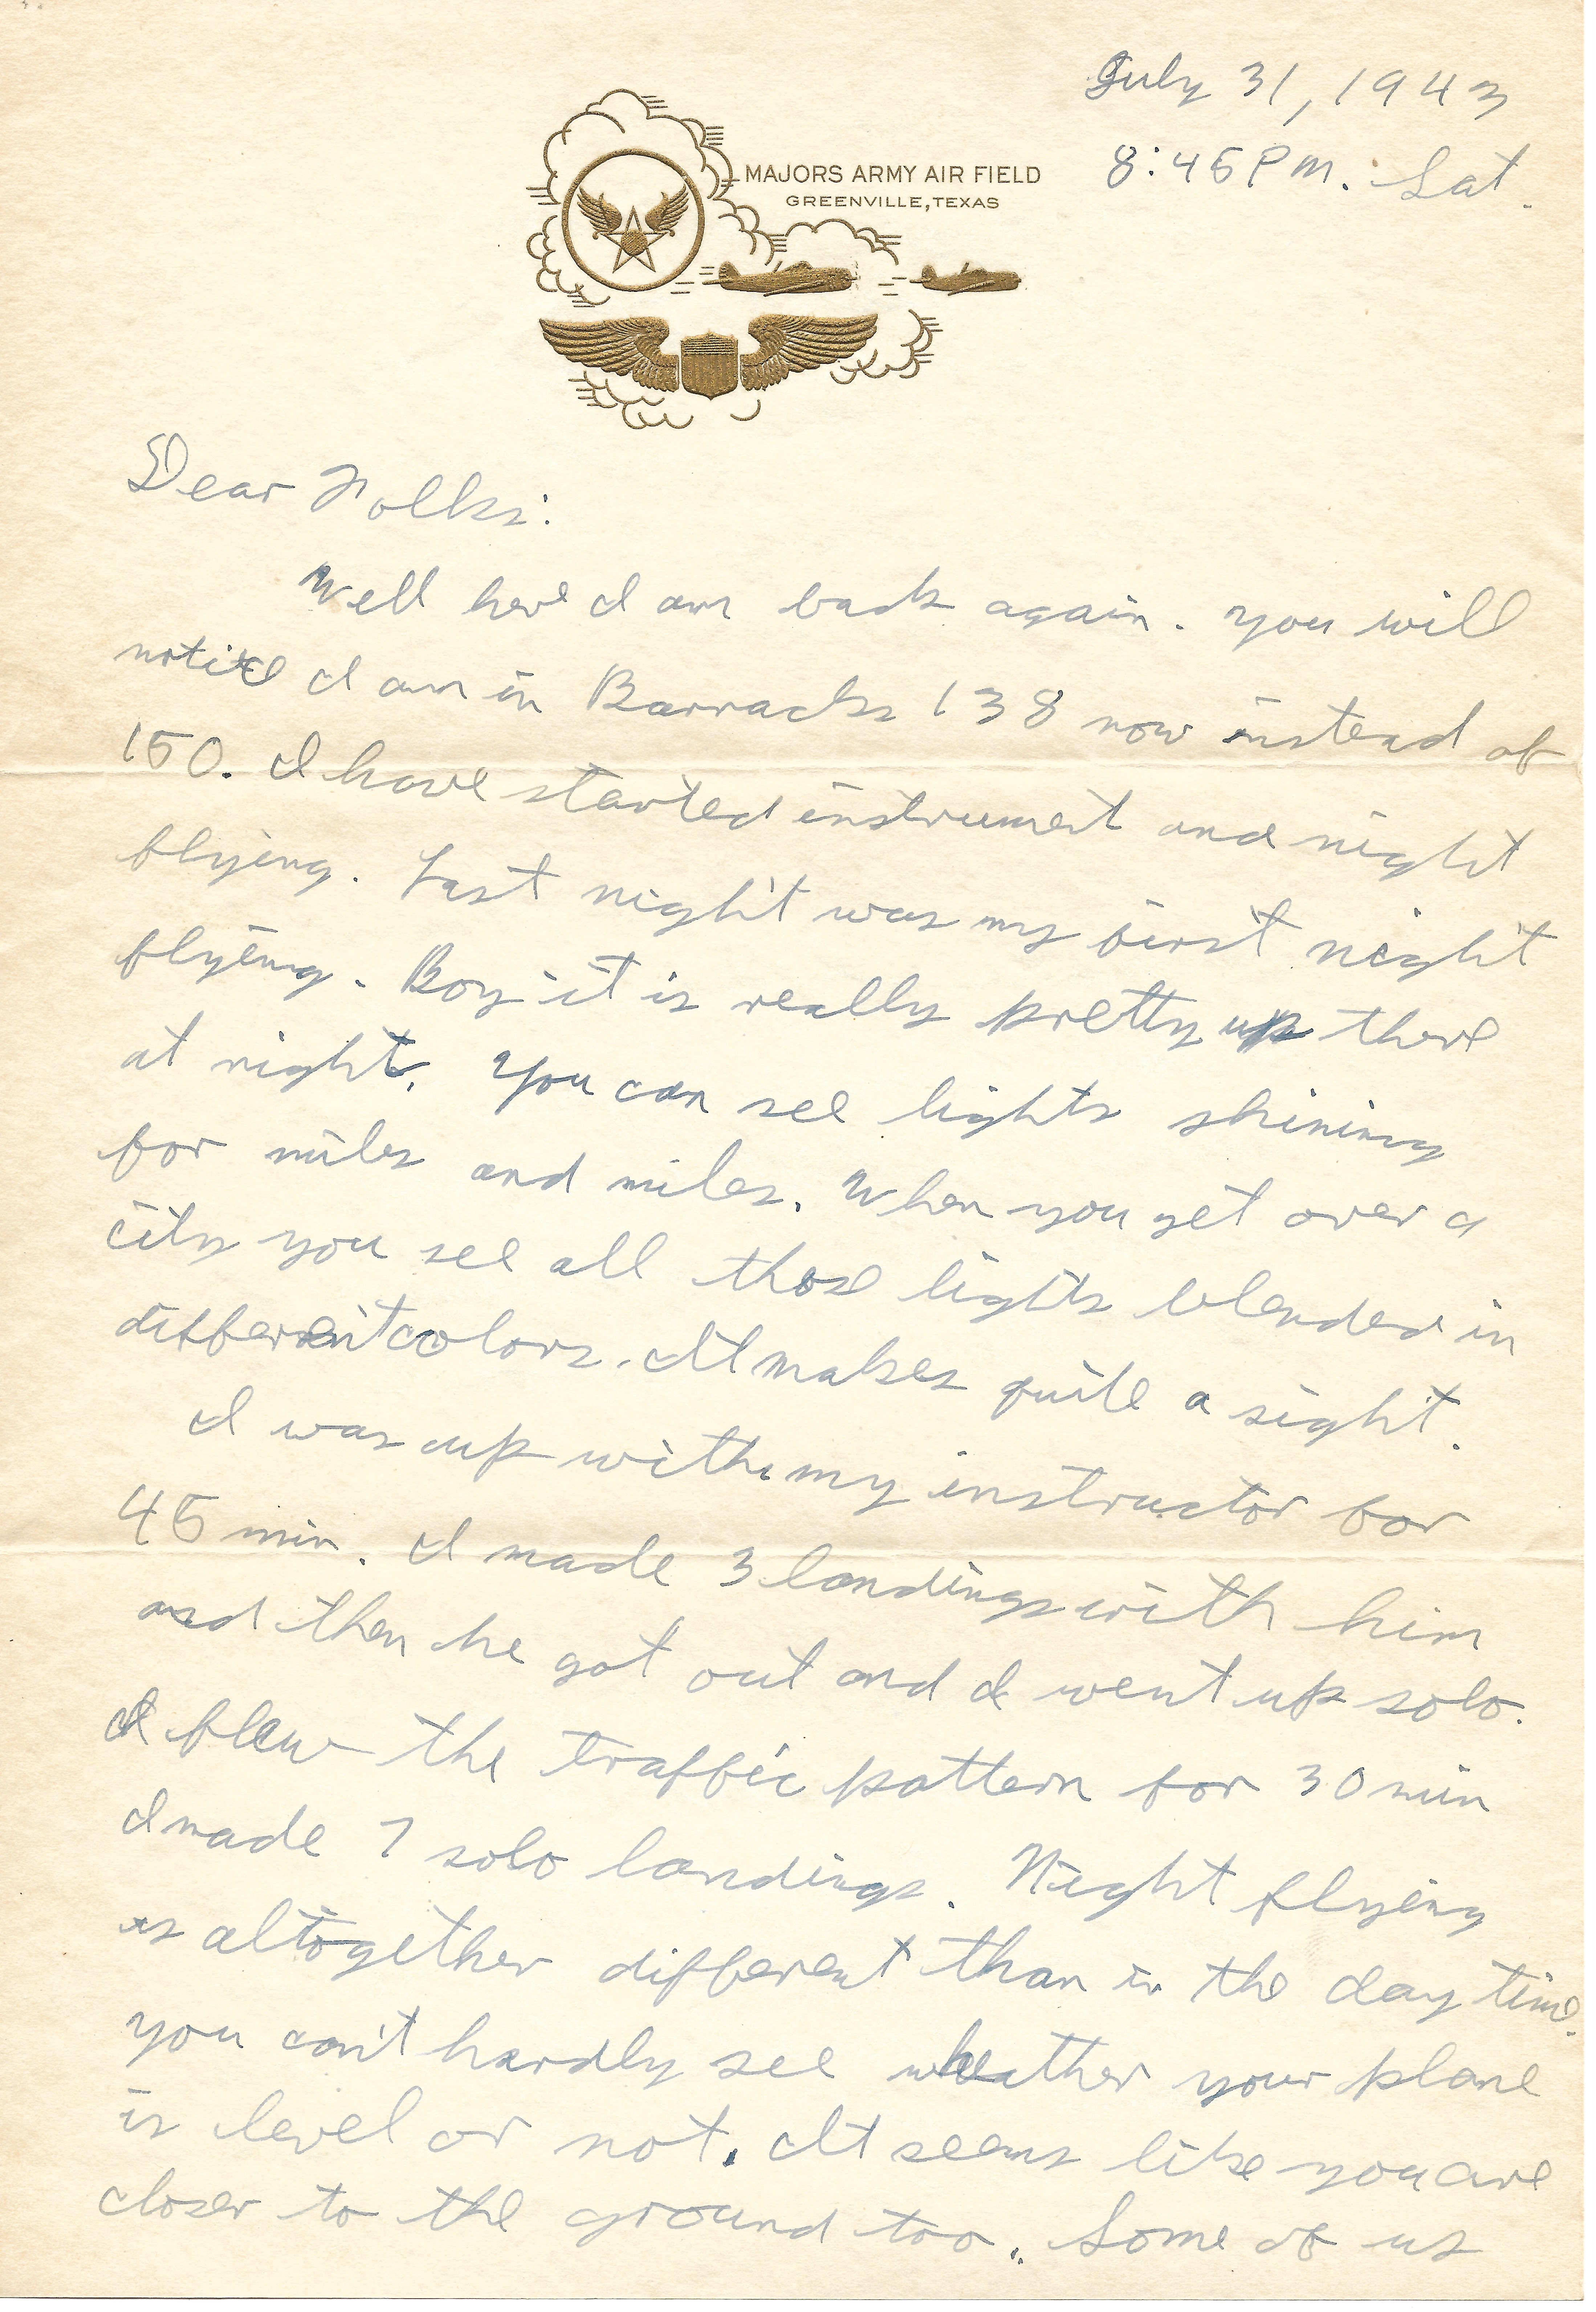 July 31, 1943
MAJORS ARMY AIR FIELD
GREENVILLE, TEXAS
8:45 P.M. Sat.
Dear Folks:
Well here I am back again. You will
notice I am in Barracks 138 now instead of
150. I have started instrument and night
flying. Last night was my first night
flying. Boy it is really pretty up there
at night. You can see lights shining
for miles and miles. When you get over a
city you see all those lights blended in
different colors. It makes quite a sight.
I was up with my instructor for
45 min. I made 3 landings with him
and then he got out and I went up solo.
I flew the traffic pattern for 30 min
I made 7 solo landings. Night flying
is altogether different than in the day time.
You can't hardly see wheather your plane
is level or not. It seems like you are
closer to the ground too. Some of us